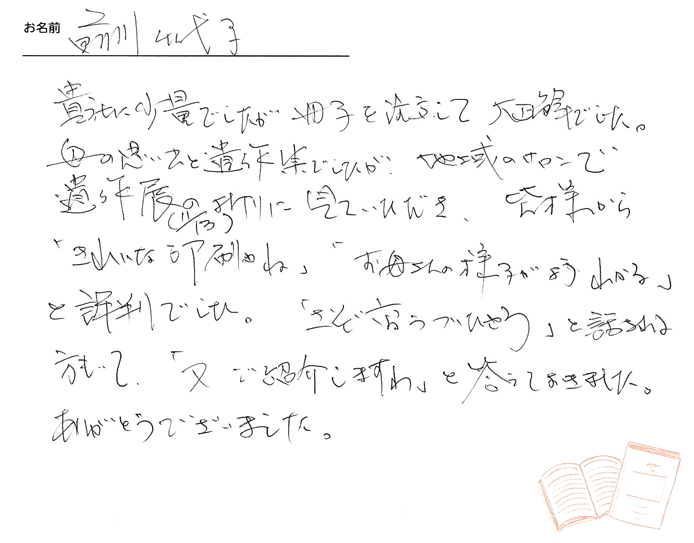 お名前 前川 代子
貴社に少量でしたが 冊子を注文して 大正解でした。
母の思い出と遺作集でしたが、地域のサロンで
遺作展の折りに見ていただき、皆様から
(11/13)
「きれいな印刷やね」「お母さんの様子がよう わかる」
と評判でした。「さぞ高うついたやろう」と話される
方もいて、「又 ご紹介しますわ」と答えておきました。
ありがとうございました。